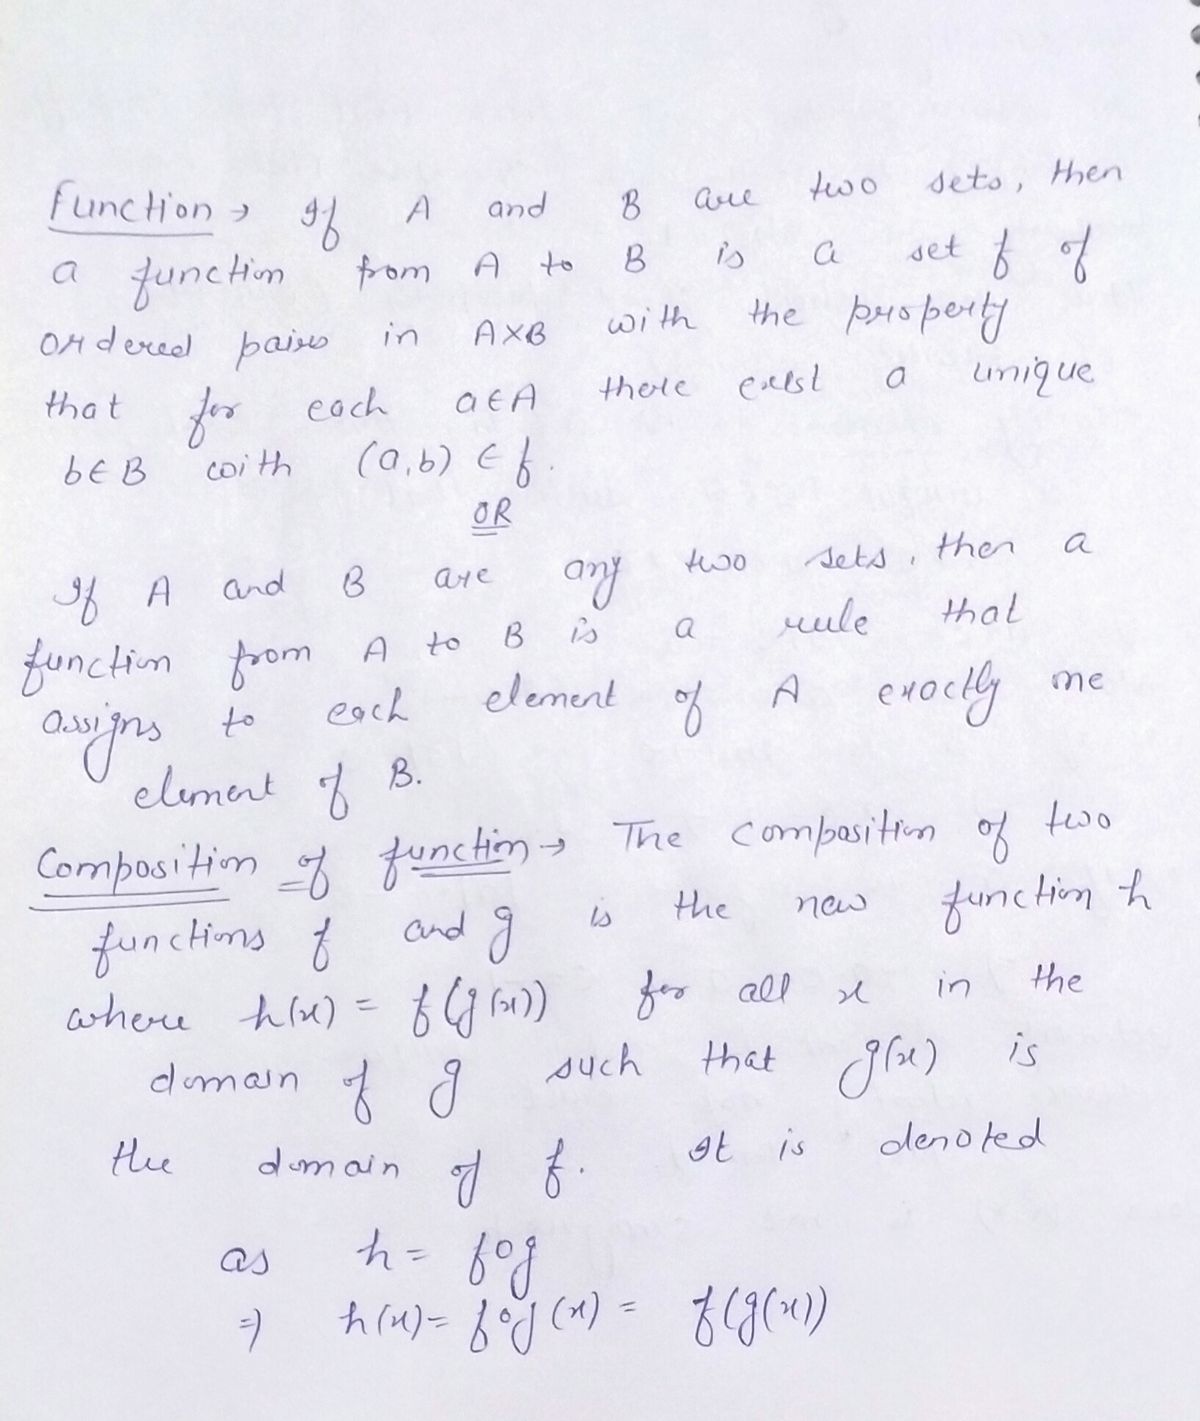 Function → If A and B are two sets, then
a function from A to B is a set f of
ordered pairs in A×B with the property
that for each a∈A there exist a unique
b∈B with (a,b) ∈ f.
OR
If A and B are any two sets, then a
function from A to B is a rule that
assigns to each element of A exactly one
element of B.
Composition of function → The composition of two
functions f and g is the new function h
where h(x) = f(g(x)) for all x in the
domain of g such that g(x) is
the domain of f. It is denoted
as h = fog
⇒ h(x) = fog(x) = f(g(x))